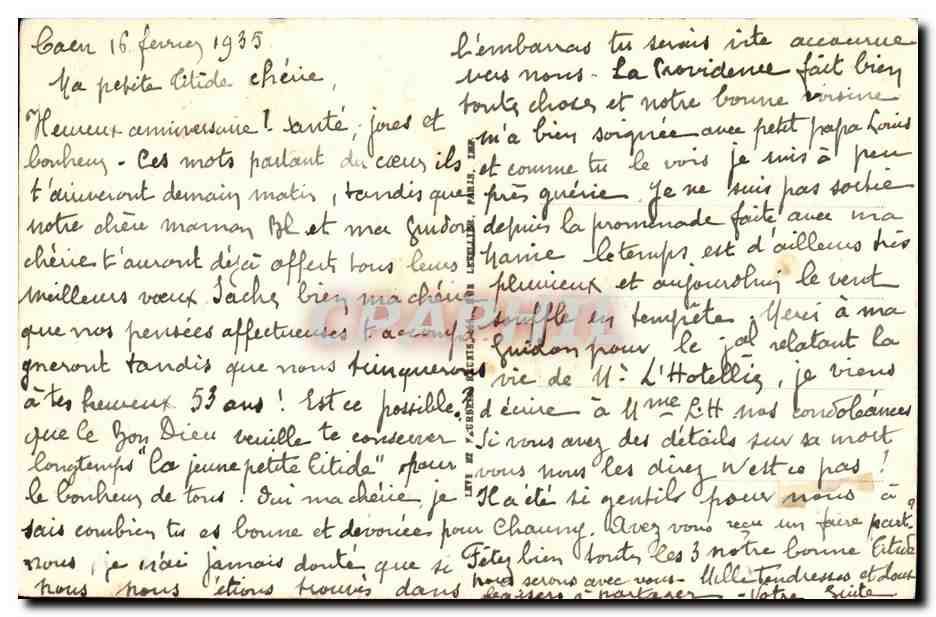 Caen 16 fevrier 1935
Ma petite Titide chérie,
Heureux anniversaire ! santé, joies et
bonheur - Ces mots partant du cœur ils
t'arriveront demain matin, tandis que
notre chère maman Bl et ma Guidon
chérie t'auront déjà offert tous leurs
meilleurs vœux Sache bien ma chérie
que nos pensées affectueuses t'accompa
gneront tandis que nous trinquerons
à tes heureux 53 ans ! Est ce possible.
que le Bon Dieu veuille te conserver
longtemps "la jeune petite Titide" pour
le bonheur de tous ! Oui ma chérie, je
sais combien tu es bonne et dévouée pour
nous, je n'ai jamais douté que si
nous nous étions trouvés dans
l'embarras tu serais vite accourue
vers nous - La Providence fait bien
toutes choses et notre bonne voisine
m'a bien soignée avec petit papa Louis
et comme tu le vois je suis à peu
près guérie. Je ne suis pas sortie
depuis la promenade faite avec ma
Nanie le temps est d'ailleurs très
pluvieux et aujourd'hui le vent
souffle en tempête. Merci à ma
Guidon pour le jal relatant la
vie de Mr L'Hotellier, je viens
d'écrire à Mme L'H nos condoléances
Si vous avez des détails sur sa mort
vous nous les direz n'est ce pas !
Il a été si gentils pour nous à
Chauny. Avez vous reçu un faire part ?
Fêtez bien toutes les 3 notre bonne Titide
nous serons avec vous - Mille tendresses et doux
baisers à partager - Votre
LEVY ET NEURDEIN REUNIS, RUE LETELLIER, PARIS. IMP.
CARTPHIL